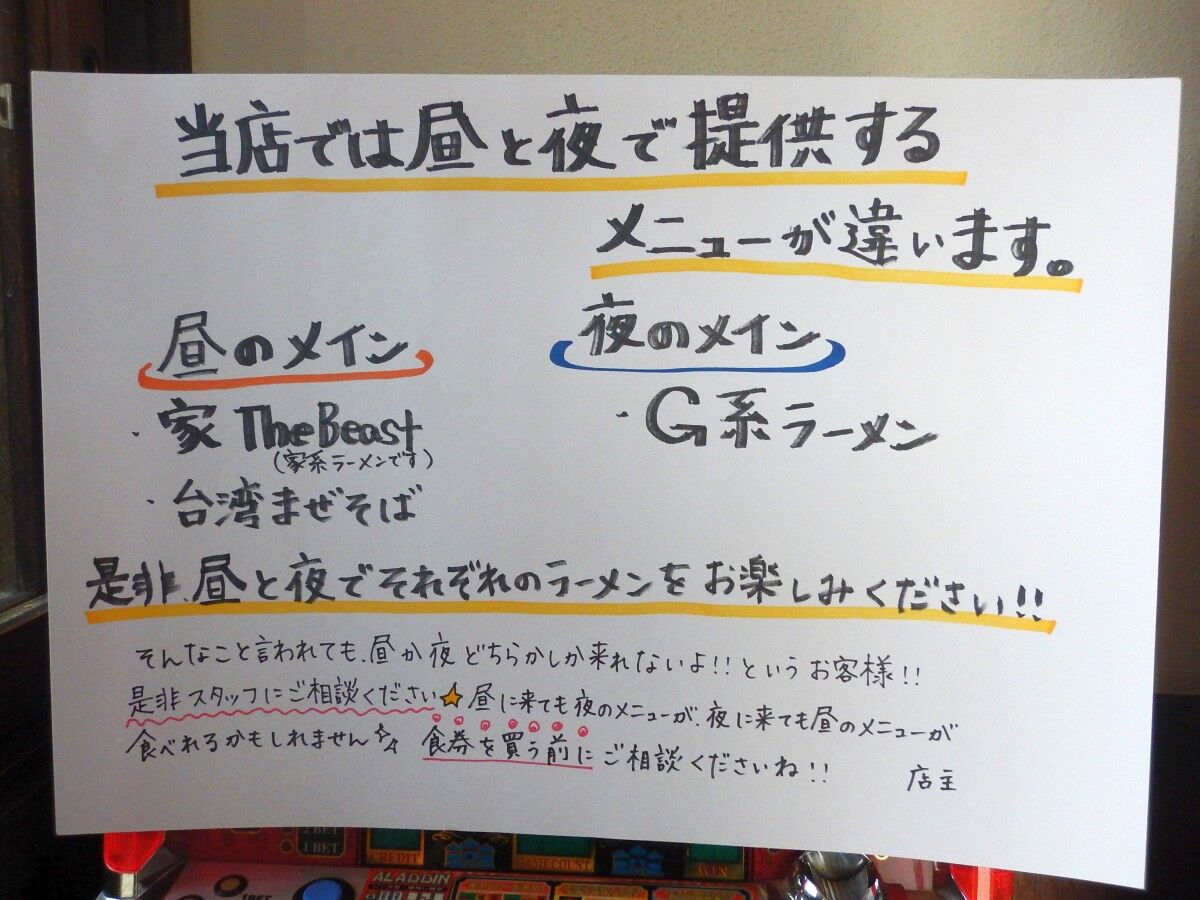 当店では昼と夜で提供する
メニューが違います。
昼のメイン
・家 The Beast
(家系ラーメンです)
・台湾まぜそば
夜のメイン
・G系ラーメン
是非、昼と夜でそれぞれのラーメンをお楽しみください!!
そんなこと言われても、昼か夜どちらかしか来れないよ!!というお客様!!
是非スタッフにご相談ください☆昼に来ても夜のメニューが、夜に来ても昼のメニューが
食べれるかもしれません 食券を買う前にご相談くださいね!!
店主
2 BET
1 BET
CREDIT
GAME COUNT
WIN
ALADDIN